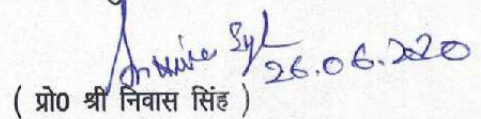 26.06.2020
( प्रो0 श्री निवास सिंह )